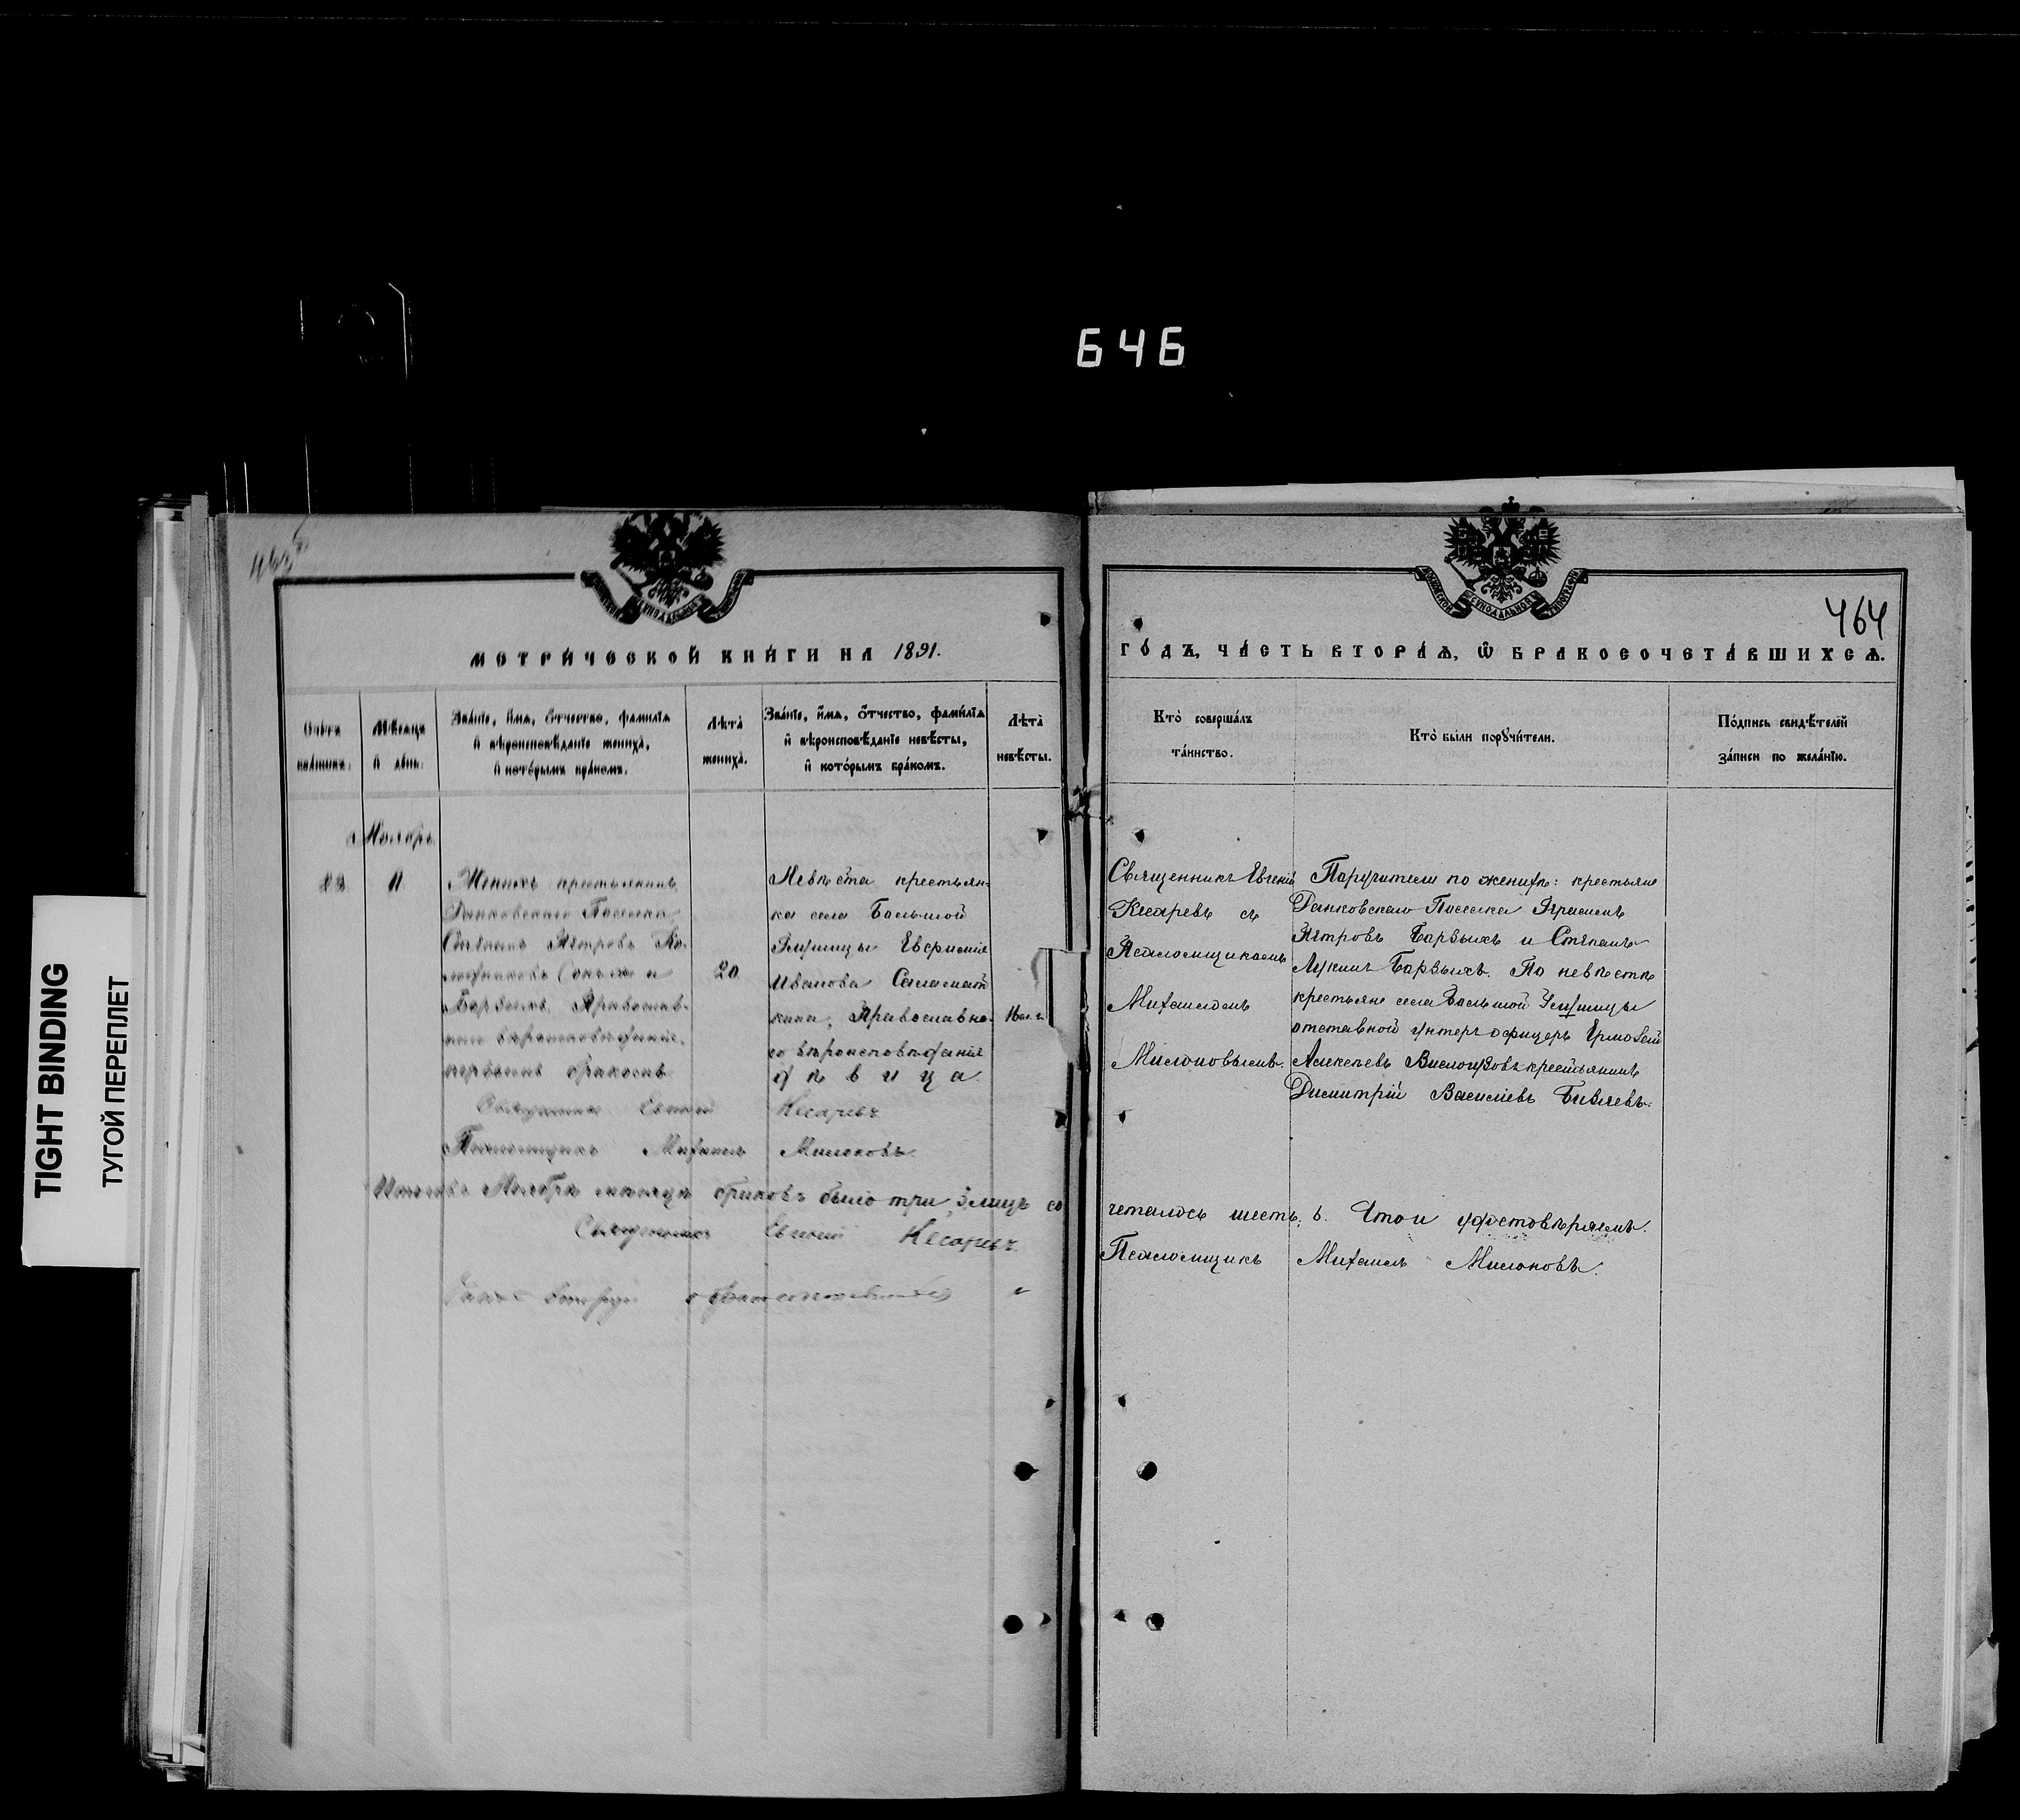 646
TIGHT BINDING
ТУГОЙ ПЕРЕПЛЕТ
МЕТРИЧЕСКОЙ КНИГИ НА 1891.
ГОДЪ, ЧАСТЬ ВТОРАЯ, Ѡ БРАКОСОЧЕТАВШИХСЯ.
464
Счетъ браковъ.
Мѣсяцъ и день.
Званіе, имя, отчество, фамилія
и вѣроисповѣданіе жениха,
и которымъ бракомъ.
Лѣта
жениха.
Званіе, имя, отчество, фамилія
и вѣроисповѣданіе невѣсты,
и которымъ бракомъ.
Лѣта
невѣсты.
Кто совершалъ
таинство.
Кто были поручители.
Подпись свидѣтелей
записи по желанію.
Ноябрь
11
Женихъ крестьянинъ
Данковскаго Поселка
Степанъ Петровъ
Барвыхъ, Православ-
наго вѣроисповѣданія,
первымъ бракомъ
20
Невѣста крестьян-
ка села Большой
Евфимія
Иванова
кина, Православна-
го вѣроисповѣданія
дѣвица.
Священникъ Евгеній Кесаревъ
Псаломщикъ Михаилъ Милоновъ.
Священникъ Евгеній
Кесаревъ съ
Псаломщикомъ
Михаиломъ
Милоновымъ.
Поручители по женихѣ: крестьяне
Данковскаго Поселка Герасимъ
Петровъ Барвыхъ и Степанъ
Лукинъ Барвыхъ. По невѣстѣ
крестьяне села Большой
отставной унтеръ офицеръ Ермолай
Алексѣевъ крестьянинъ
Димитрій Васильевъ
Итого въ Ноябрѣ мѣсяцѣ браковъ было три, 3 лицъ со
четалось шесть, 6. Что и удостовѣряемъ.
Священникъ Евгеній Кесаревъ
Псаломщикъ Михаилъ Милоновъ.